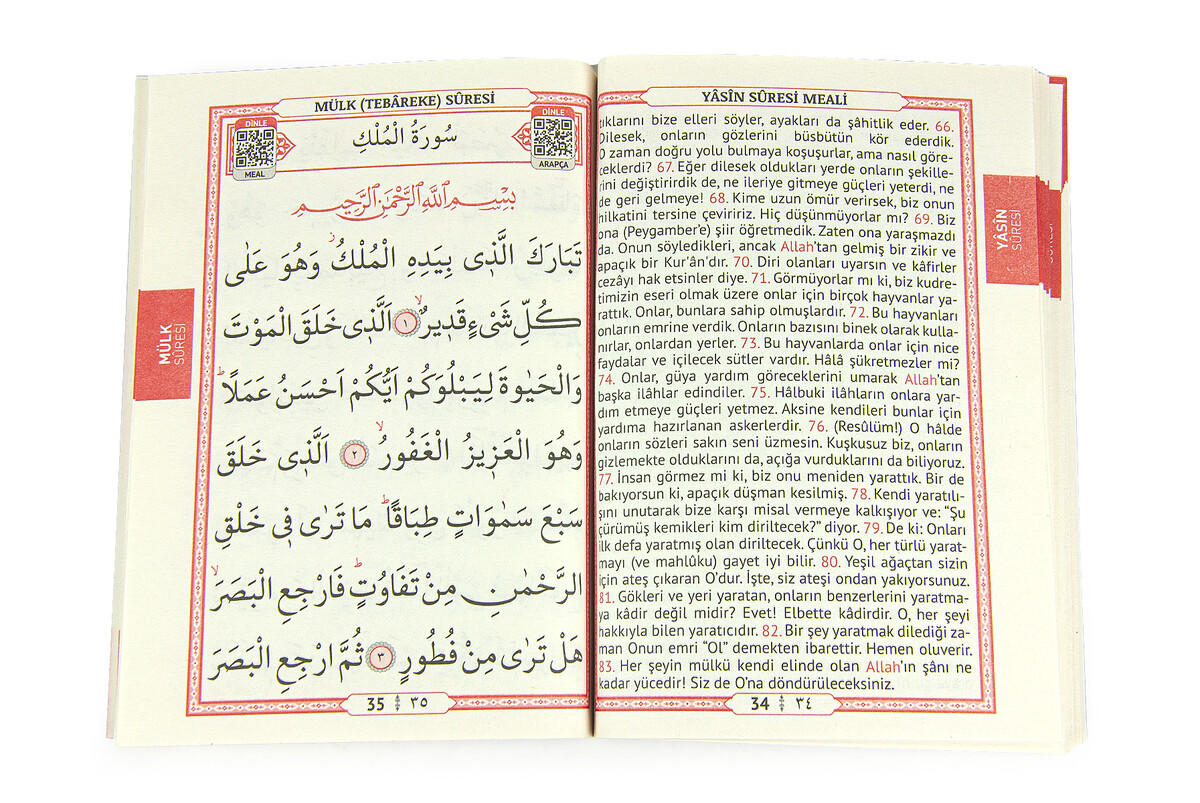 YÂSÎN SÛRESİ MEALİ
ıklarını bize elleri söyler, ayakları da şâhitlik eder. 66.
Dilesek, onların gözlerini büsbütün kör ederdik.
O zaman doğru yolu bulmaya koşuşurlar, ama nasıl göre-
ceklerdi? 67. Eğer dilesek oldukları yerde onların şekille-
rini değiştirirdik de, ne ileriye gitmeye güçleri yeterdi, ne
de geri gelmeye! 68. Kime uzun ömür verirsek, biz onun
hilkatini tersine çeviririz. Hiç düşünmüyorlar mı? 69. Biz
ona (Peygamber’e) şiir öğretmedik. Zaten ona yaraşmazdı
da. Onun söyledikleri, ancak Allah’tan gelmiş bir zikir ve
apaçık bir Kur'ân'dır. 70. Diri olanları uyarsın ve kâfirler
cezâyı hak etsinler diye. 71. Görmüyorlar mı ki, biz kudre-
timizin eseri olmak üzere onlar için birçok hayvanlar ya-
rattık. Onlar, bunlara sahip olmuşlardır. 72. Bu hayvanları
onların emrine verdik. Onların bazısını binek olarak kulla-
nırlar, onlardan yerler. 73. Bu hayvanlarda onlar için nice
faydalar ve içilecek sütler vardır. Hâlâ şükretmezler mi?
74. Onlar, güya yardım göreceklerini umarak Allah’tan
başka ilâhlar edindiler. 75. Hâlbuki ilâhların onlara yar-
dım etmeye güçleri yetmez. Aksine kendileri bunlar için
yardıma hazırlanan askerlerdir. 76. (Resûlüm!) O hâlde
onların sözleri sakın seni üzmesin. Kuşkusuz biz, onların
gizlemekte olduklarını da, açığa vurduklarını da biliyoruz.
77. İnsan görmez mi ki, biz onu meniden yarattık. Bir de
bakıyorsun ki, apaçık düşman kesilmiş. 78. Kendi yaratılı-
şını unutarak bize karşı misal vermeye kalkışıyor ve: “Şu
çürümüş kemikleri kim diriltecek?” diyor. 79. De ki: Onları
ilk defa yaratmış olan diriltecek. Çünkü O, her türlü yarat-
mayı (ve mahlûku) gayet iyi bilir. 80. Yeşil ağaçtan sizin
için ateş çıkaran O’dur. İşte, siz ateşi ondan yakıyorsunuz.
81. Gökleri ve yeri yaratan, onların benzerlerini yaratma-
ya kâdir değil midir? Evet! Elbette kâdirdir. O, her şeyi
hakkıyla bilen yaratıcıdır. 82. Bir şey yaratmak dilediği za-
man Onun emri “Ol” demekten ibarettir. Hemen oluverir.
83. Her şeyin mülkü kendi elinde olan Allah’ın şânı ne
kadar yücedir! Siz de O’na döndürüleceksiniz.
34 ٣٤
YÂSÎN
SÛRESİ
MÜLK (TEBÂREKE) SÛRESİ
DİNLE
MEAL
سُورَةُ الْمُلْكِ
DİNLE
ARAPÇA
بِسْمِ اللّٰهِ الرَّحْمٰنِ الرَّحِيمِ
تَبَارَكَ الَّذ۪ي بِيَدِهِ الْمُلْكُۘ وَهُوَ عَلٰى
كُلِّ شَيْءٍ قَد۪يرٌۙ ١ اَلَّذ۪ي خَلَقَ الْمَوْتَ
وَالْحَيٰوةَ لِيَبْلُوَكُمْ اَيُّكُمْ اَحْسَنُ عَمَلًاۜ
وَهُوَ الْعَز۪يزُ الْغَفُورُۙ ٢ اَلَّذ۪ي خَلَقَ
سَبْعَ سَمٰوَاتٍ طِبَاقًاۜ مَا تَرٰى ف۪ي خَلْقِ
الرَّحْمٰنِ مِنْ تَفَاوُتٍۜ فَارْجِعِ الْبَصَرَۙ
هَلْ تَرٰى مِنْ فُطُورٍ ٣ ثُمَّ ارْجِعِ الْبَصَرَ
35 ٣٥
MÜLK
SÛRESİ